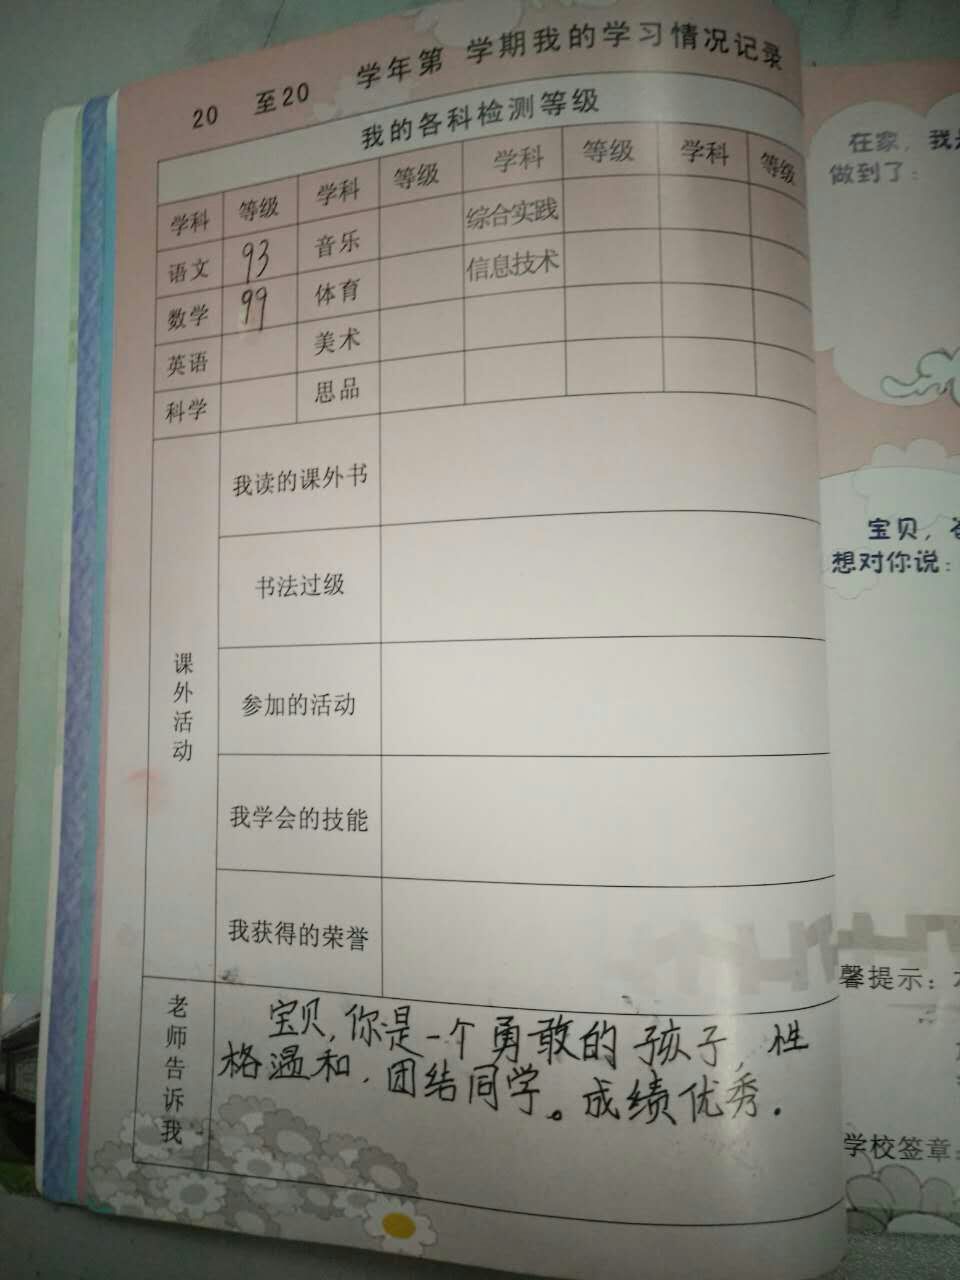 20 至20 学年第 学期我的学习情况记录
我的各科检测等级
学科 等级 学科 等级 学科 等级 学科 等级
语文 93 音乐 综合实践
数学 99 体育 信息技术
英语 美术
科学 思品
课外活动
我读的课外书
书法过级
参加的活动
我学会的技能
我获得的荣誉
老师告诉我
宝贝,你是一个勇敢的孩子,性
格温和,团结同学。成绩优秀.
在家,我
做到了:
宝贝,
想对你说:
馨提示:
学校签章: